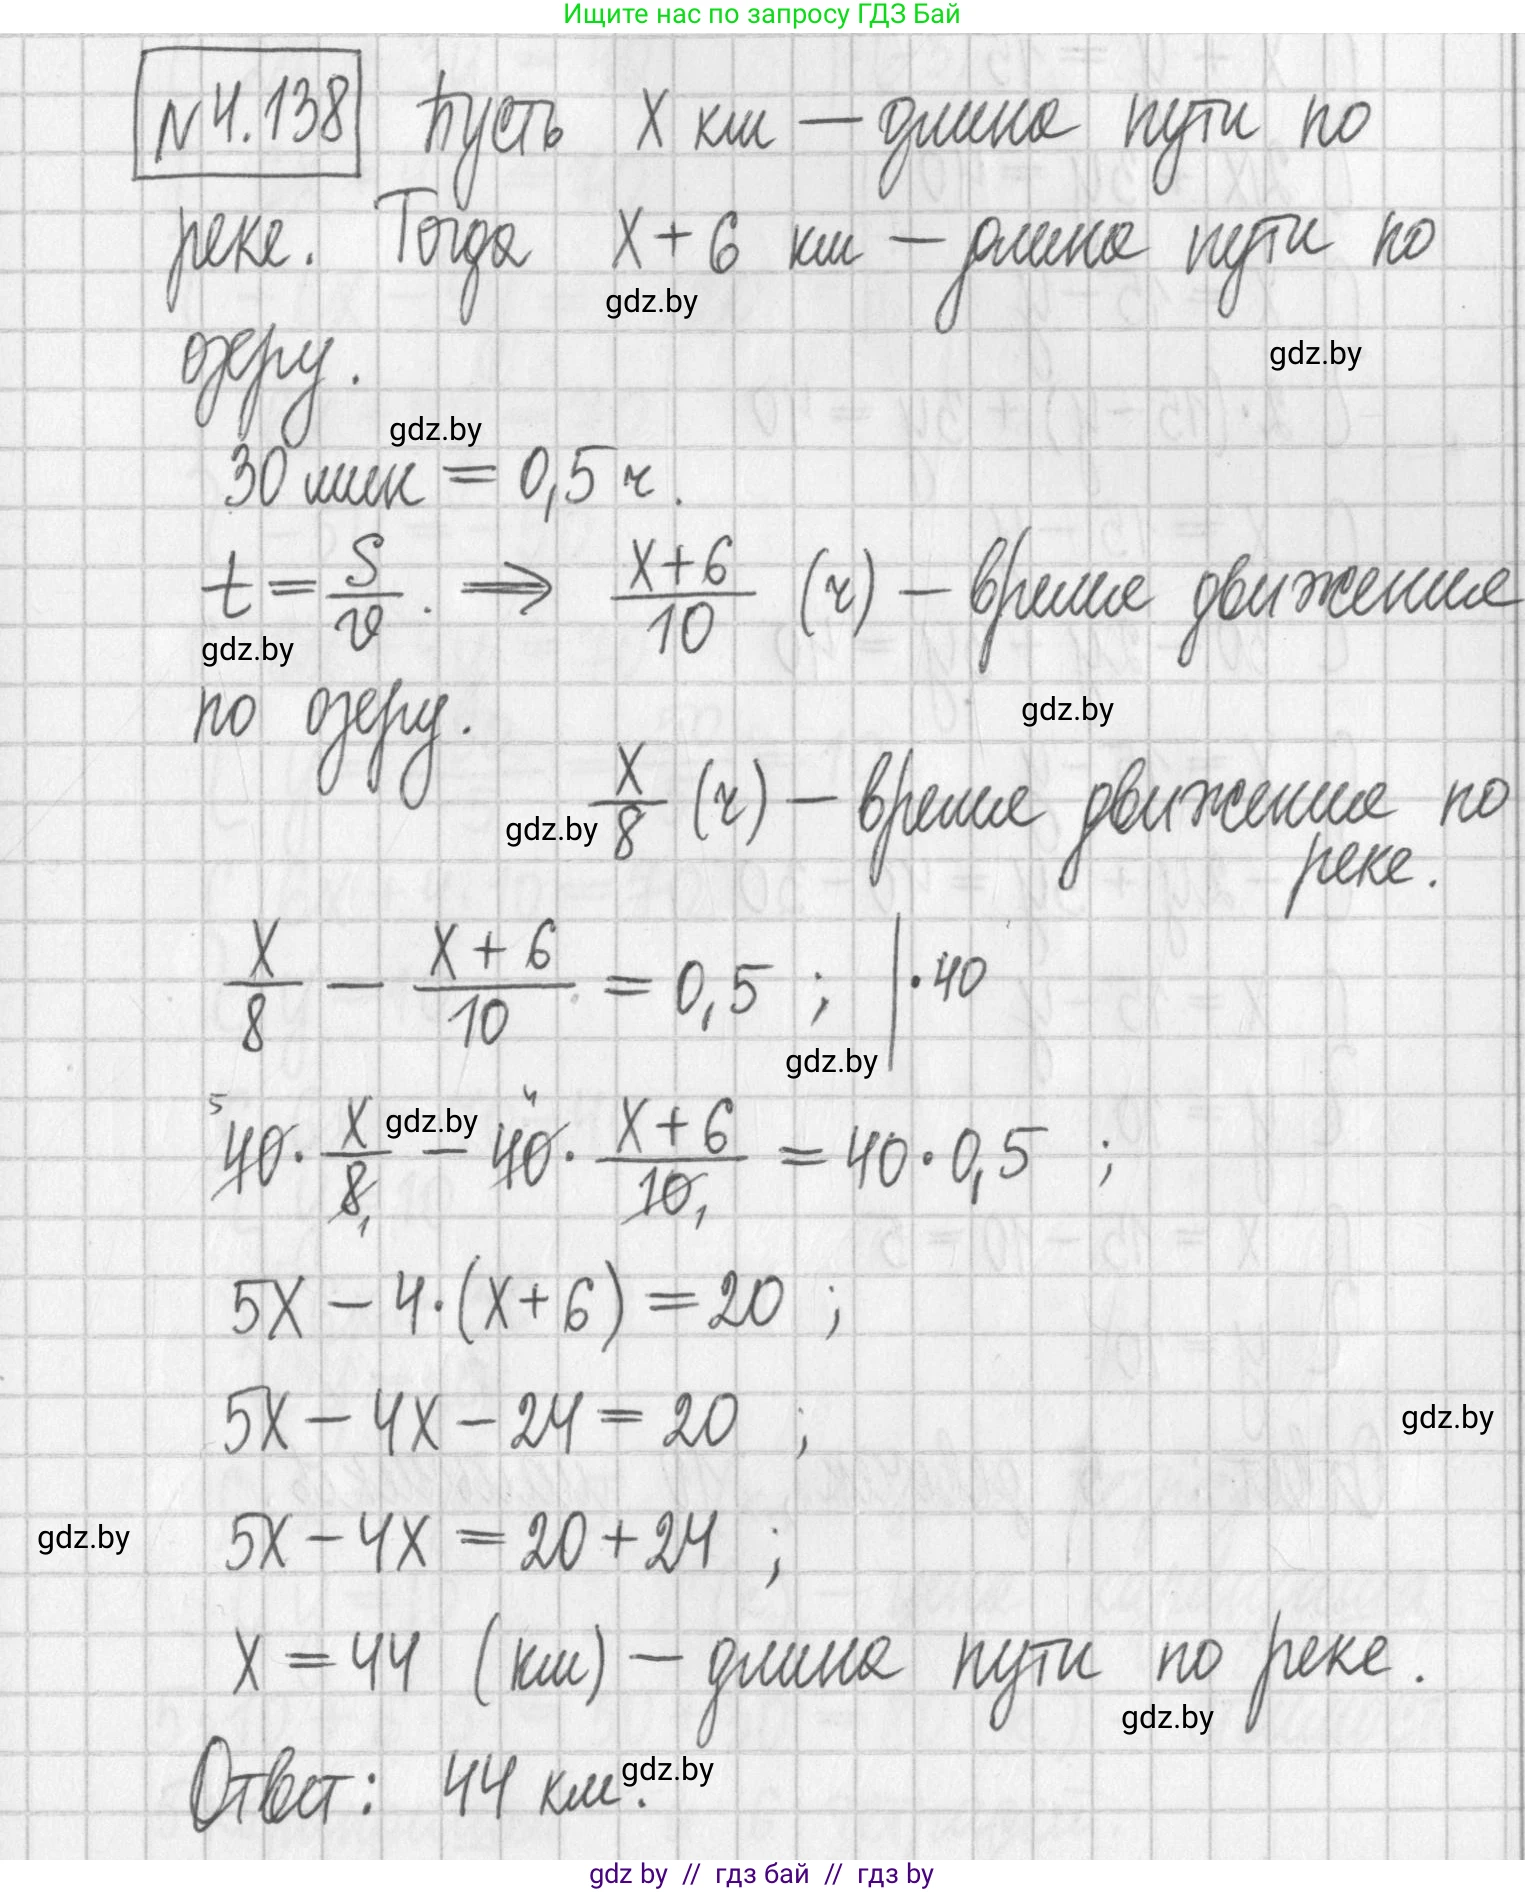 Ищите нас по запросу ГДЗ Бай
N 4.138 Пусть X км — длина пути по
реке. Тогда X + 6 км — длина пути по
gdz.by
озеру.
gdz.by
gdz.by
30 мин = 0,5 ч.
t = S/v. ⇒ (X+6)/10 (ч) — время движения
gdz.by
по озеру.
gdz.by
X/8 (ч) — время движения по
gdz.by
реке.
X/8 — (X+6)/10 = 0,5 ; | · 40
gdz.by
5 40 · X/8 1 — 4 40 · (X+6)/10 1 = 40 · 0,5 ;
gdz.by
5X — 4 · (X+6) = 20 ;
5X — 4X — 24 = 20 ;
gdz.by
5X — 4X = 20 + 24 ;
gdz.by
X = 44 (км) — длина пути по реке.
gdz.by
Ответ: 44 км.
gdz.by
gdz by // гдз бай // гдз by